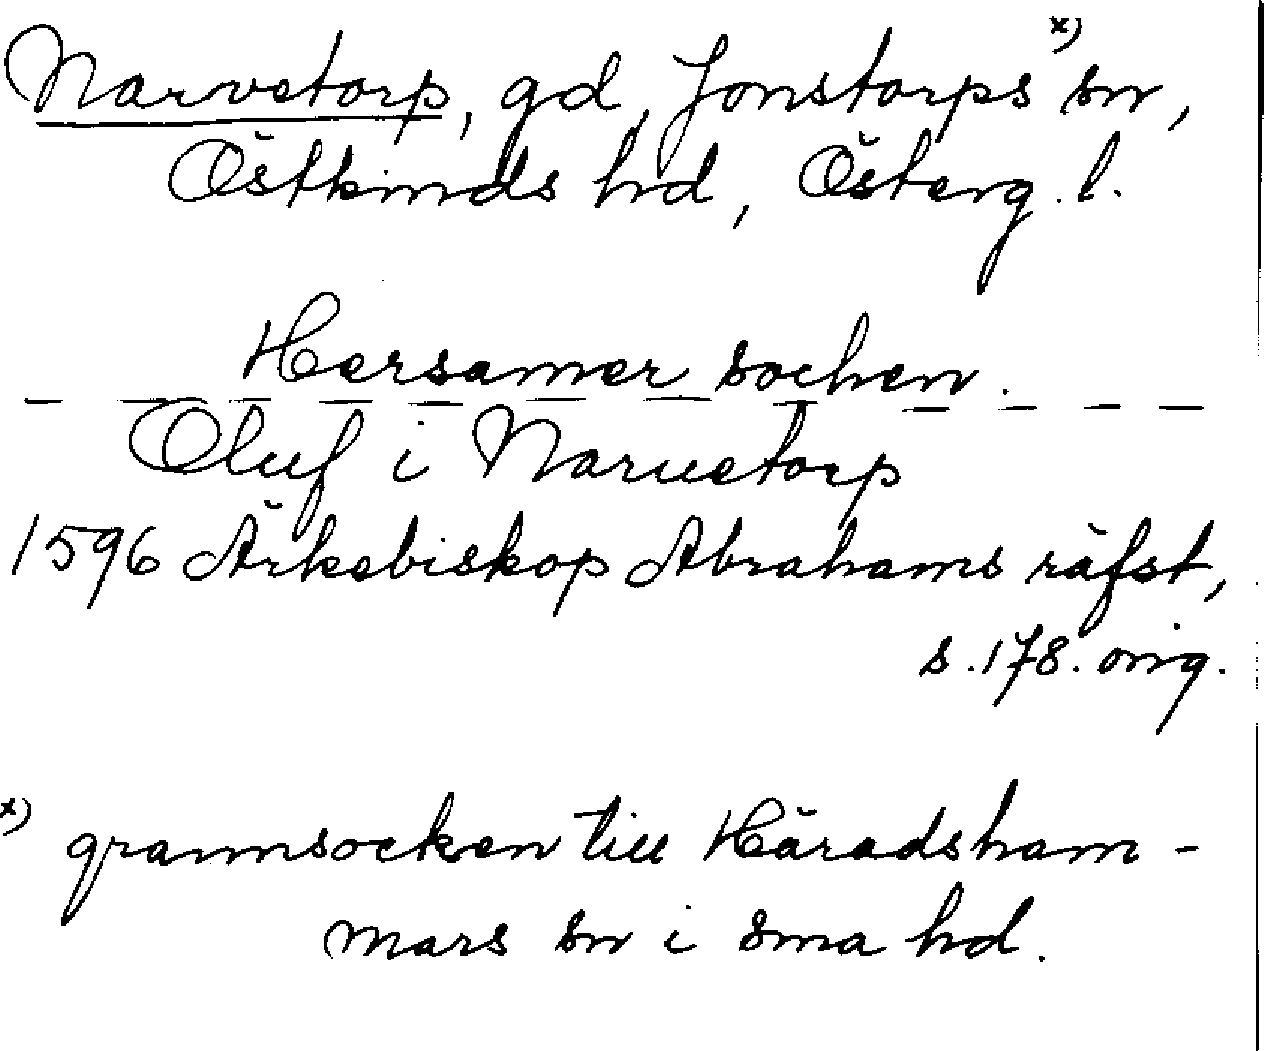 Narvetorp, gd, Jonstorps x) sn,
Östkinds hd, Österg. l.
Hersamer sochen.
Oluf i Naruetorp
1596 Ärkebiskop Abrahams räfst,
s. 178. orig.
x) grannsocken till Häradsham-
mars sn i sma hd.